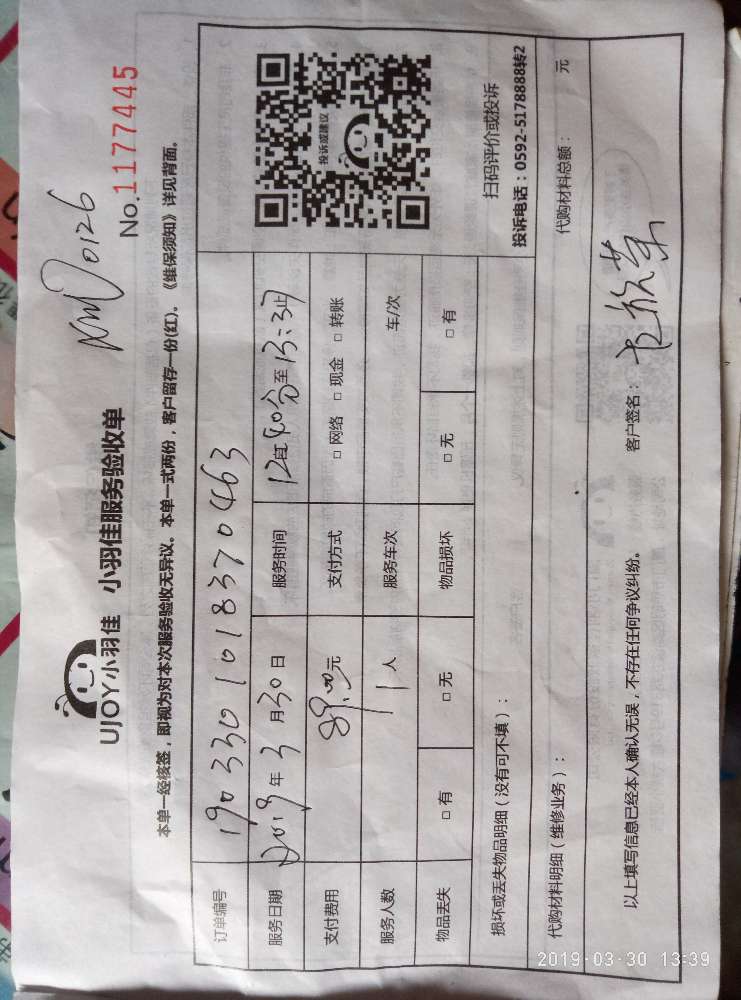 UJOY小羽佳 小羽佳服务验收单
0126
No.1177445
本单一经核签，即视为对本次服务验收无异议。本单一式两份，客户留存一份(红)。《维保须知》详见背面。
订单编号 190330101018370463
服务日期 2019年3月30日 服务时间 12时40分至13:37止
支付费用 89.00元 支付方式 □ 网络 □ 现金 □ 转账
服务人数 1人 服务车次 车/次
物品丢失 □ 有 □ 无 物品损坏 □ 无 □ 有
投诉或建议
扫码评价或投诉
投诉电话：0592-5178888转2
损坏或丢失物品明细（没有可不填）：
代购材料明细（维修业务）： 代购材料总额： 元
以上填写信息已经本人确认无误，不存在任何争议纠纷。 客户签名：
2019-03-30 13:39